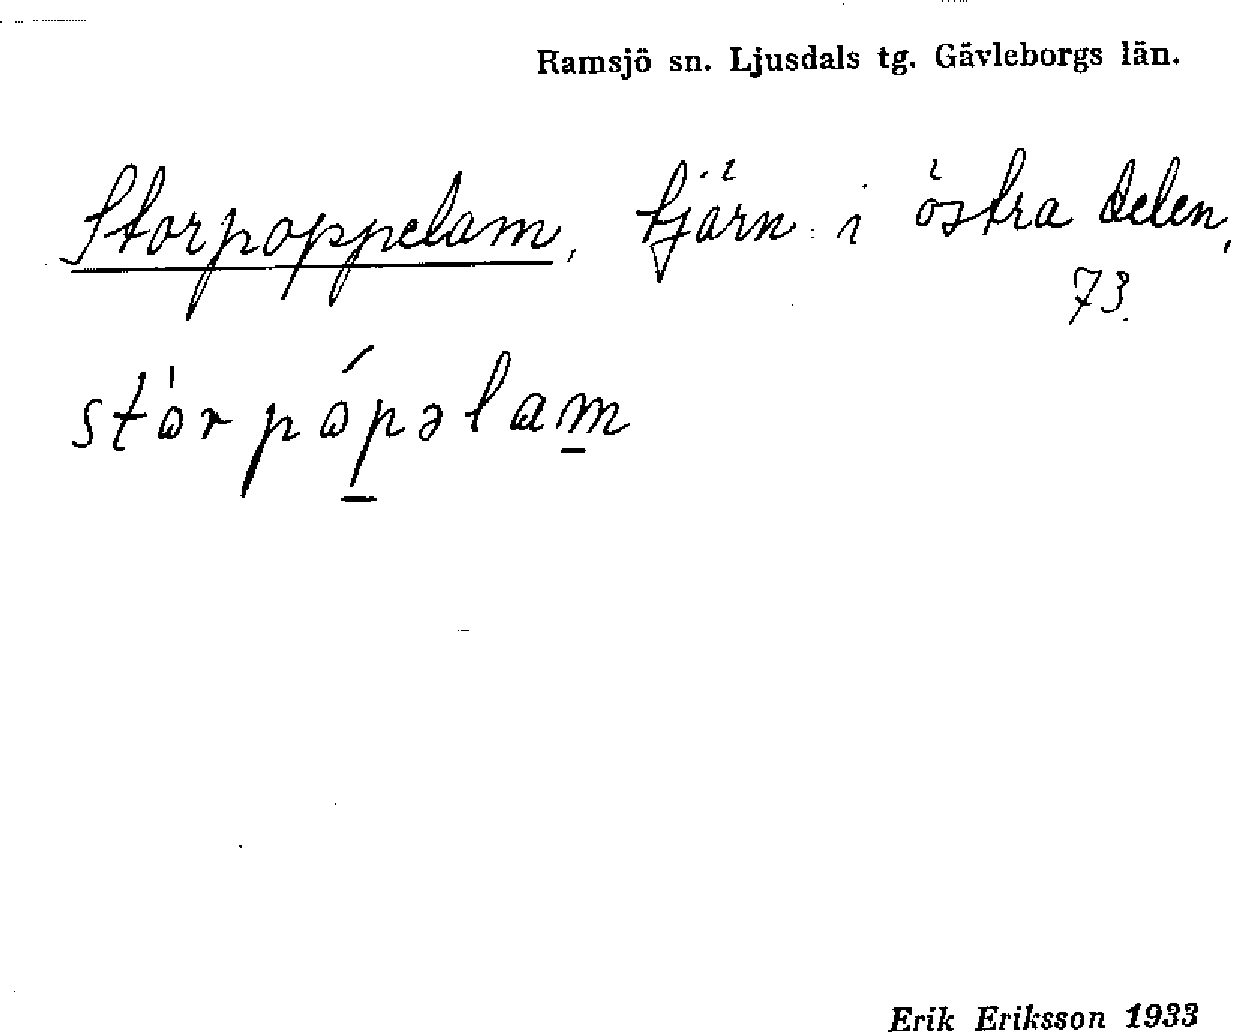 Ramsjö sn. Ljusdals tg. Gävleborgs län.
Storpoppelam, tjärn i östra delen,
73.
stòrpópəlam
Erik Eriksson 1933